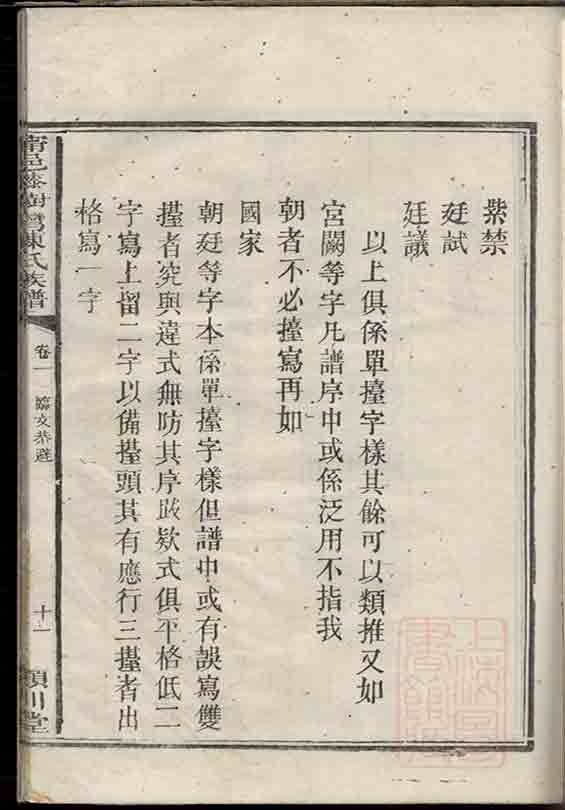 紫禁
廷試
廷議
以上俱係單擡字樣其餘可以類推又如
宮闕等字凡譜序中或係泛用不指我
朝者不必擡寫再如
國家
朝廷等字本係單擡字樣但譜中或有誤寫雙
擡者究與違式無妨其序跋欵式俱平格低二
字寫上留二字以備擡頭其有應行三擡者出
格寫一字
邑 樹 陳氏族譜
卷一
臨文恭避
十一
潁川堂
上海圖書館藏